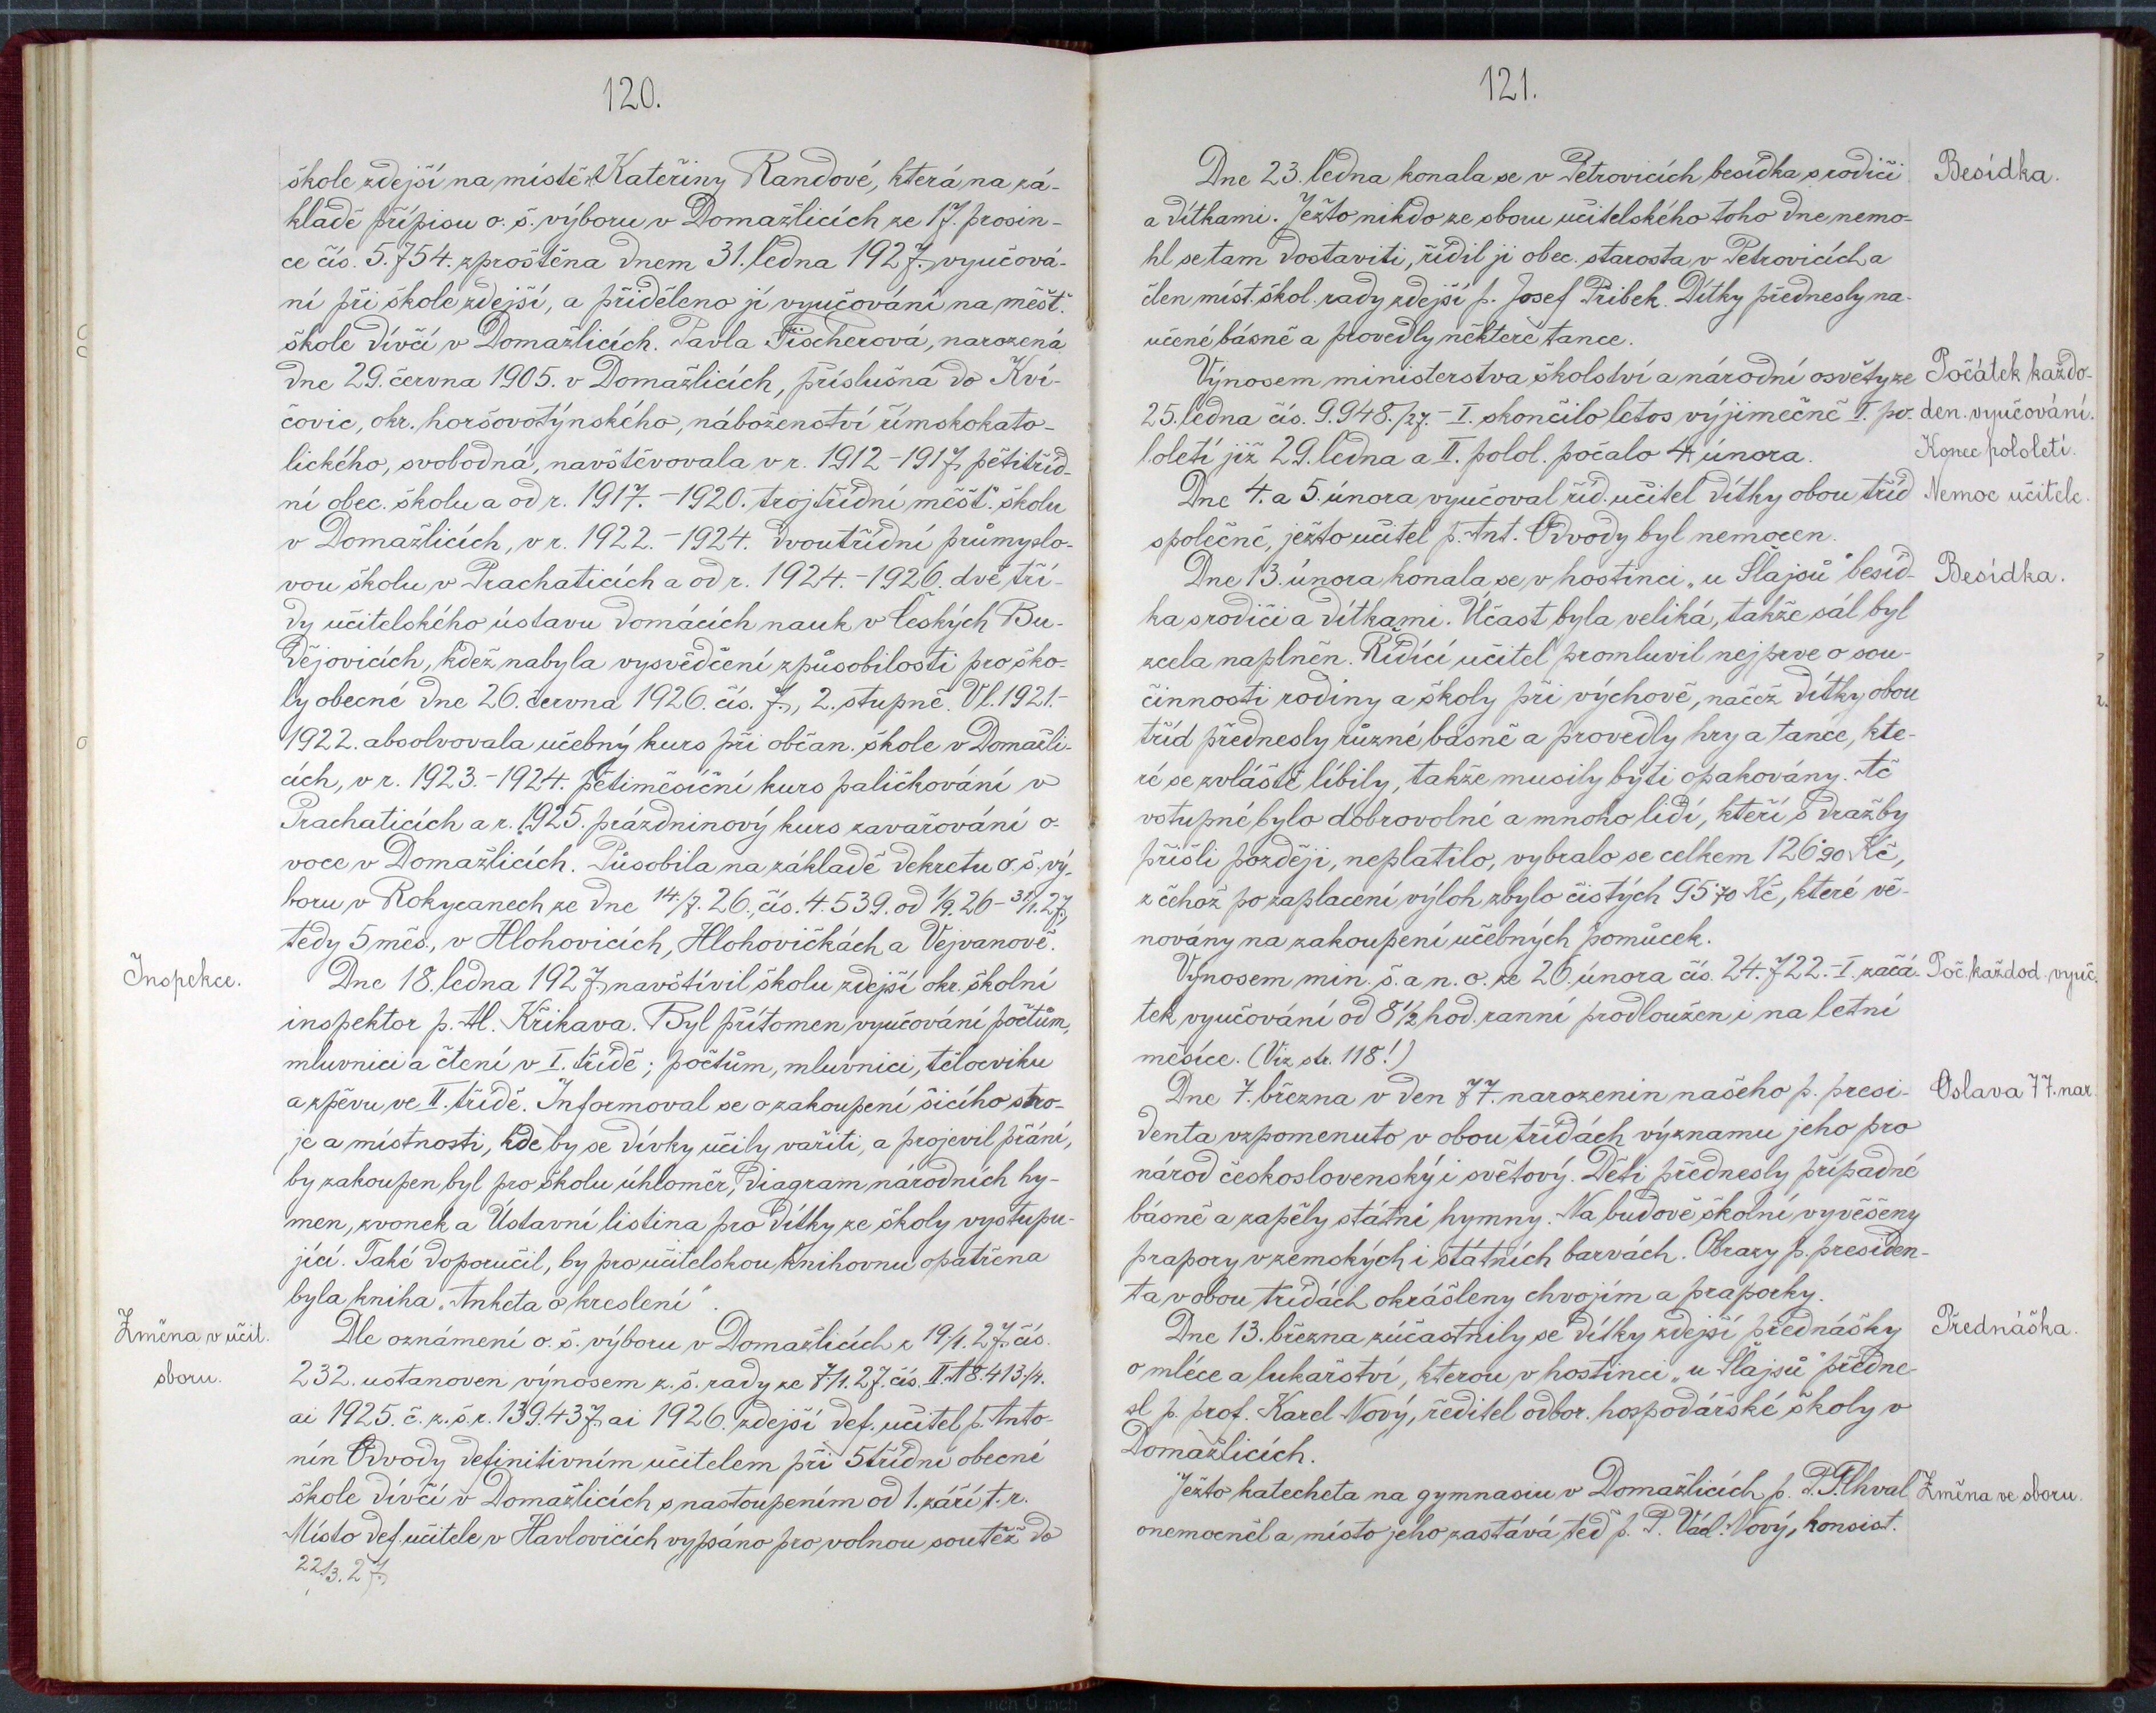 120.
škole zdejší na místě Kateřiny Randové, která na zá-
kladě přípisu o. š. výboru v Domažlicích ze 17. prosin-
ce čís. 5.754. zproštěna dnem 31. ledna 1927. vyučová-
ní při škole zdejší, a přiděleno jí vyučování na měšť.
škole dívčí v Domažlicích. Pavla Fischerová, narozená
dne 29. června 1905. v Domažlicích, příslušná do Kví-
čovic, okr. horšovotýnského, náboženství římskokato-
lického, svobodná, navštěvovala v r. 1912-1917, pětitříd-
ní obec. školu a od r. 1917.-1920. trojtřídní měšť. školu
v Domažlicích, v r. 1922.-1924. dvoutřídní průmyslo-
vou školu v Prachaticích a od r. 1924.-1926. dvě tří-
dy učitelského ústavu domácích nauk v Českých Bu-
dějovicích, kdež nabyla vysvědčení způsobilosti pro ško-
ly obecné dne 26. června 1926. čís. 7., 2. stupně. Vl. 1921.-
1922. absolvovala učebný kurs při občan. škole v Domažli-
cích, v r. 1923.-1924. pětiměsíční kurs paličkování v
Prachaticích a r. 1925. prázdninový kurs zavařování o-
voce v Domažlicích. Působila na základě dekretu o. š. vý-
boru v Rokycanech ze dne 14./7. 26., čís. 4.539. od 1/9. 26 - 31/1. 27.,
tedy 5 měs., v Hlohovicích, Hlohovičkách a Vejvanově.
Inspekce.
Dne 18. ledna 1927, navštívil školu zdejší okr. školní
inspektor p. Al. Křikava. Byl přítomen vyučování počtům,
mluvnici a čtení v I. třídě; počtům, mluvnici, tělocviku
a zpěvu ve II. třídě. Informoval se o zakoupení šicího stro-
je a místnosti, kde by se dívky učily vařiti, a projevil přání,
by zakoupen byl pro školu úhloměr, diagram národních hy-
men, zvonek a Ústavní listina pro dítky ze školy vystupu-
jící. Také doporučil, by pro učitelskou knihovnu opatřena
byla kniha „Anketa o kreslení".
Změna v učit.
sboru.
Dle oznámení o. š. výboru v Domažlicích z 19/1. 27. čís.
232. ustanoven výnosem z. š. rady ze 7./1. 27. čís. II. A 8.413/4.
ai 1925. č. z. š. r. 139.437, ai 1926. zdejší def. učitel p. Anto-
nín Odvody definitivním učitelem při 5třídní obecné
škole dívčí v Domažlicích s nastoupením od 1. září t. r.
Místo def. učitele v Havlovicích vypsáno pro volnou soutěž do
22/3. 27.
121.
Dne 23. ledna konala se v Petrovicích besídka s rodiči
Besídka.
a dítkami. Ježto nikdo ze sboru učitelského toho dne nemo-
hl se tam dostaviti, řídil ji obec. starosta v Petrovicích a
člen míst. škol. rady zdejší p. Josef Přibek. Dítky přednesly na-
učené básně a provedly některé tance.
Výnosem ministerstva školství a národní osvěty ze
Počátek každo-
25. ledna čís. 9.948./27.-I. skončilo letos výjimečně I. po-
den. vyučování.
loletí již 29. ledna a II. polol. počalo 4. února.
Konec pololetí.
Dne 4. a 5. února vyučoval říd. učitel dítky obou tříd
Nemoc učitele.
společně, ježto učitel p. Ant. Odvody byl nemocen.
Dne 13. února konala se v hostinci „u Šlajsů" besíd-
Besídka.
ka s rodiči a dítkami. Účast byla veliká, takže sál byl
zcela naplněn. Řídící učitel promluvil nejprve o sou-
činnosti rodiny a školy při výchově, načež dítky obou
tříd přednesly různé básně a provedly hry a tance, kte-
ré se zvláště líbily, takže musily býti opakovány. Ač
vstupné bylo dobrovolné a mnoho lidí, kteří s dražby
přišli později, neplatilo, vybralo se celkem 126·90 Kč,
z čehož po zaplacení výloh zbylo čistých 95·70 Kč, které vě-
novány na zakoupení učebných pomůcek.
Výnosem min. š. a n. o. ze 26. února čís. 24.722.-I. začá-
Poč. každod. vyuč.
tek vyučování od 8 1/2 hod. ranní prodloužen i na letní
měsíce. (Viz str. 118!)
Dne 7. března v den 77. narozenin našeho p. presi-
Oslava 77. nar.
denta vzpomenuto v obou třídách významu jeho pro
národ československý i světový. Děti přednesly případné
básně a zapěly státní hymny. Na budově školní vyvěšeny
prapory v zemských i státních barvách. Obrazy p. presiden-
ta v obou třídách okrášleny chvojím a praporky.
Dne 13. března zúčastnily se dítky zdejší přednášky
Přednáška.
o mléce a lukařství, kterou v hostinci „u Šlajsů" předne-
sl p. prof. Karel Nový, ředitel odbor. hospodářské školy v
Domažlicích.
Ježto katecheta na gymnasiu v Domažlicích p. P. Chval
Změna ve sboru.
onemocněl a místo jeho zastává teď p. P. Václ. Nový, konsist.